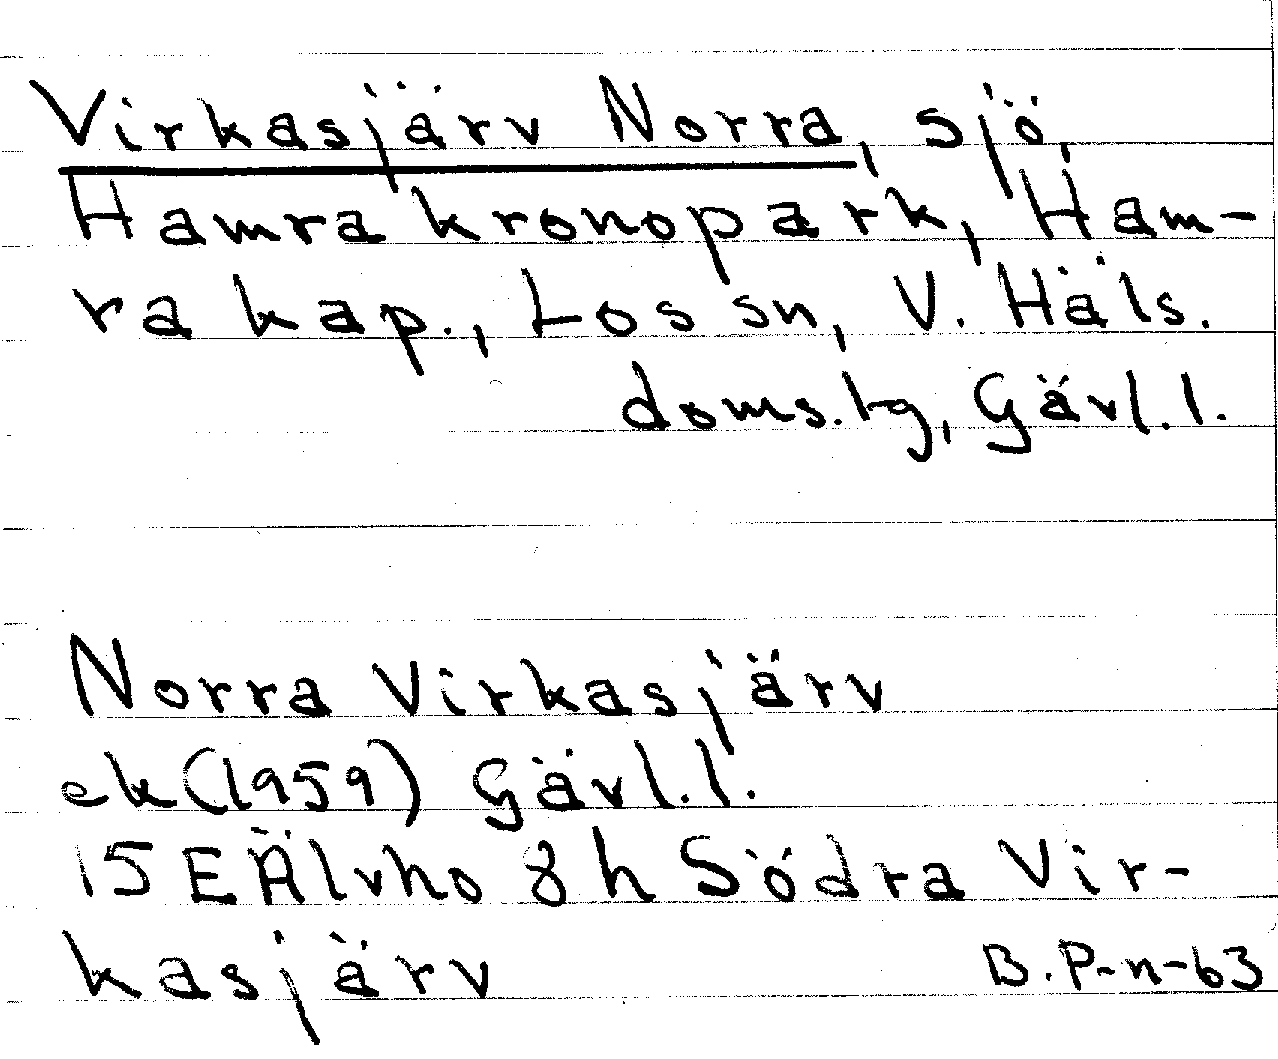 Virkasjärv Norra, sjö,
Hamra kronopark, Ham-
ra kap., Los sn, V. Häls.
doms.tg, Gävl.l.
Norra Virkasjärv
ek (1959) Gävl.l.
15E Älvho 8h Södra Vir-
kasjärv
B.P-n-63